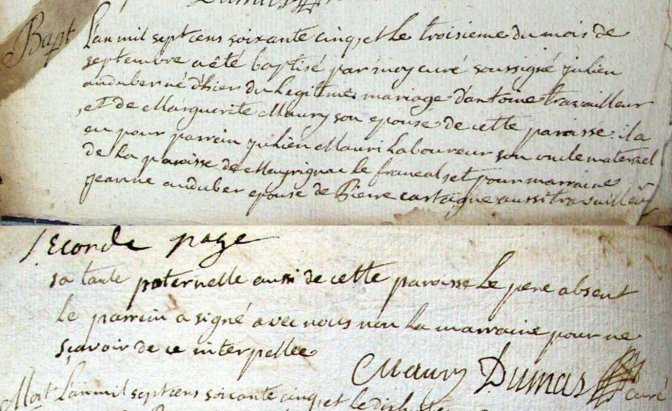 Dumas
Bapt L'an mil sept cens soixante cinq, et le troisieme du mois de
septembre a été baptisé par moy curé soussigné julien
auduber né d'hier du Legitime mariage d'antoine travailleur
et de Marguerite Maury son epouse de cette paroisse : il a
eu pour parrein julien Mauri Laboureur son oncle maternel
de La paroisse de Mayrignac le francal, et pour marraine
jeanne auduber epouse de Pierre cartaigne aussi travailleur
seconde page
sa tante paternelle aussi de cette paroisse Le pere absent
Le parrein a signé avec nous non La marraine pour ne
sçavoir de ce interpellée
Maury Dumas curé
Mort L'an mil sept cens soixante cinq, et le